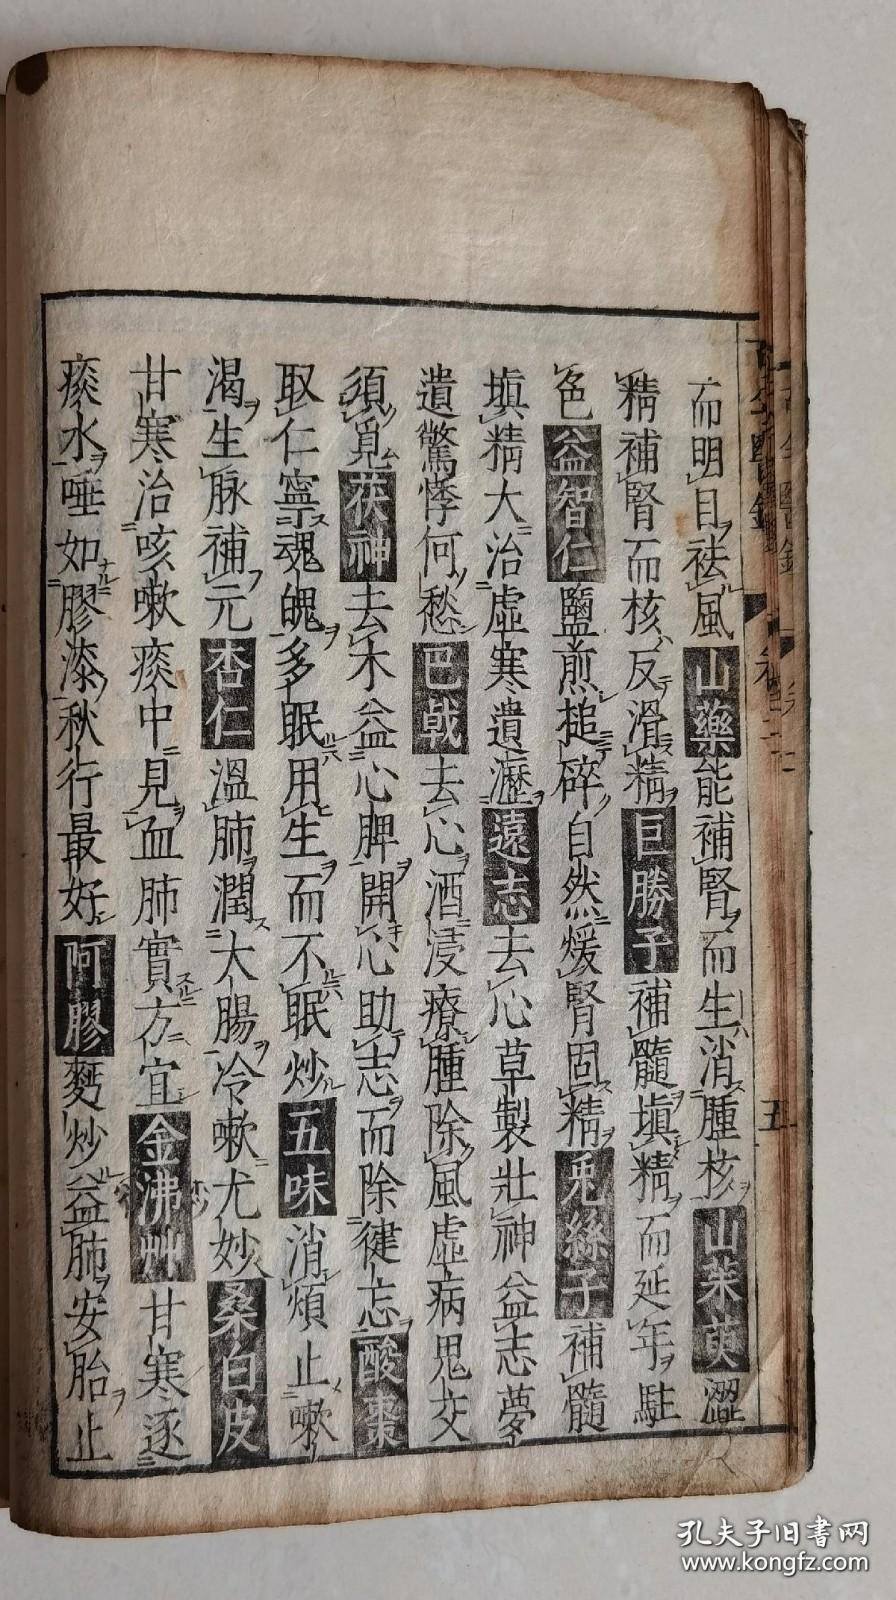 而明目祛風山藥能補腎而生消腫核山茱萸澀
精補腎而核反滑精巨勝子補髓塡精而延年駐
色益智仁鹽煎搥碎自然煖腎固精兎絲子補髓
塡精大治虛寒遺瀝遠志去心草製壯神益志夢
遺驚悸何愁巴戟去心酒浸療腫除風虛病鬼交
須覓茯神去木益心脾開心助志而除健忘酸棗
取仁寧魂魄多眠用生而不眠炒五味消煩止嗽
渴生脉補元杏仁溫肺潤大腸冷嗽尤妙桑白皮
甘寒治咳嗽痰中見血肺實方宜金沸艸甘寒逐
痰水唾如膠漆秋行最好阿膠麪炒益肺安胎止
五
孔夫子旧书网
www.kongfz.com